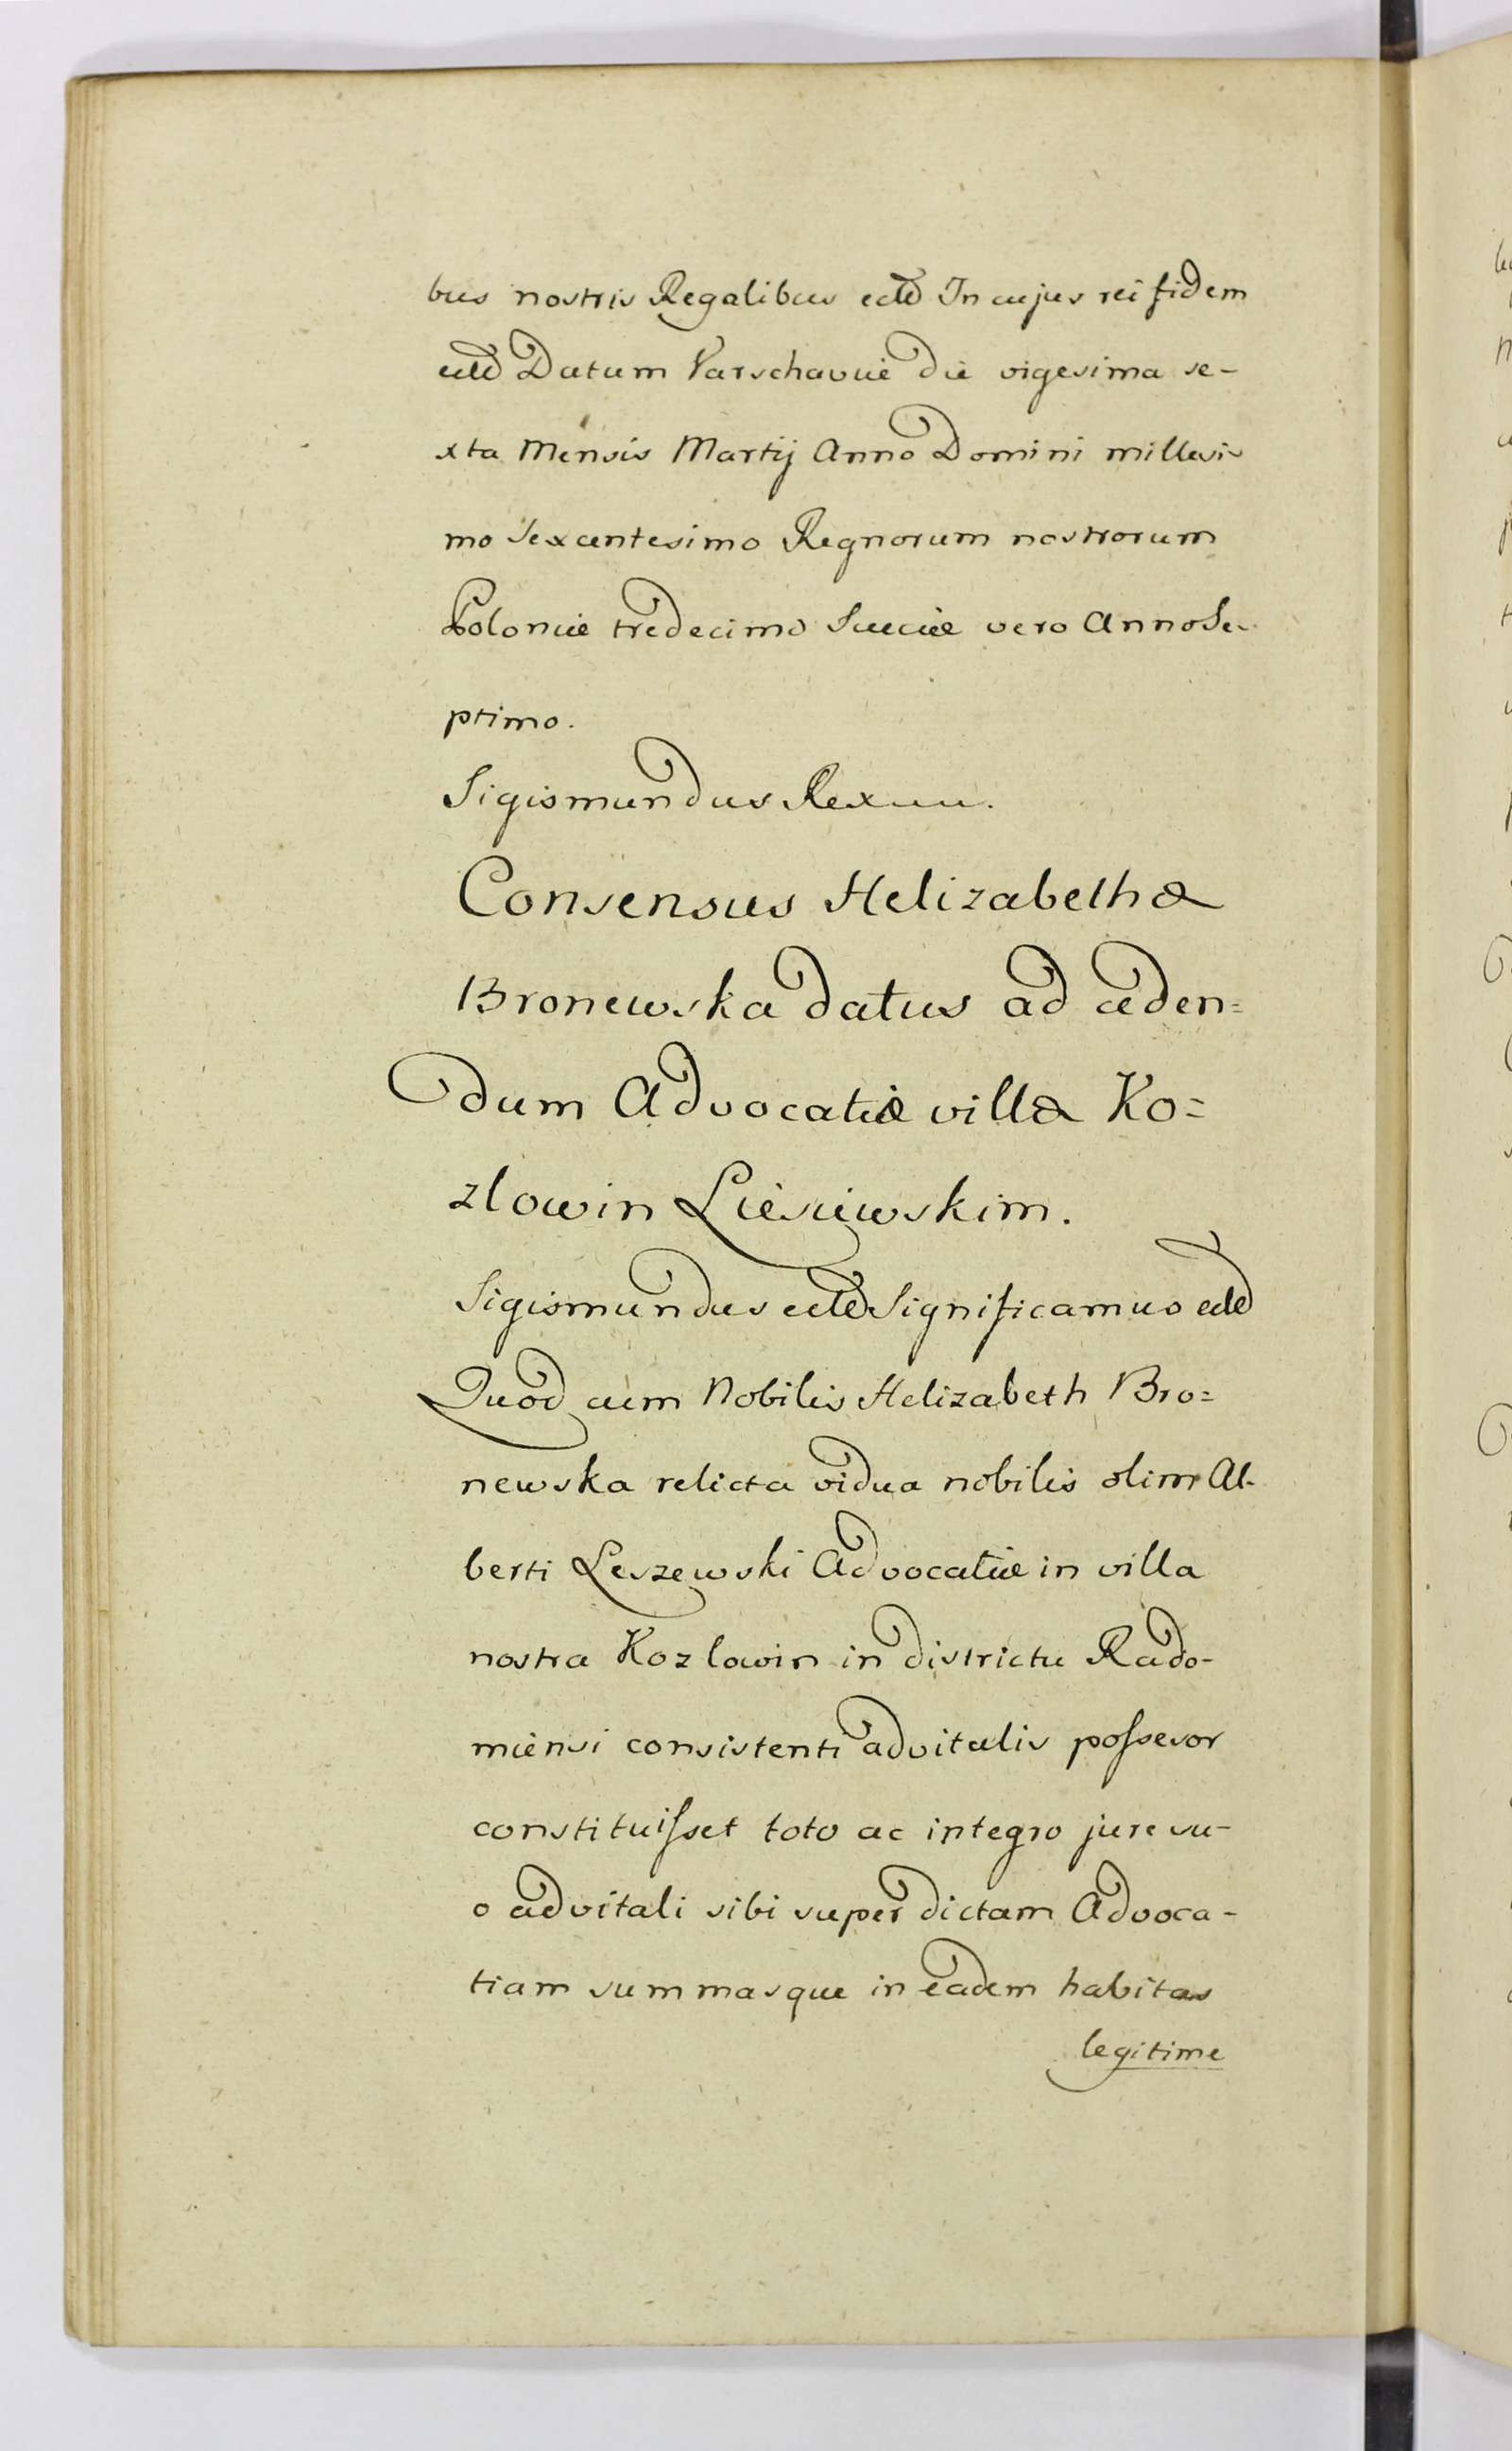 bus nostris Regalibus etc. In cujus rei fidem
etc. Datum Varschaviæ die vigesima se-
xta Mensis Martij Anno Domini millesi-
mo Sexcentesimo Regnorum nostrorum
Poloniæ tredecimo Sueciæ vero Anno Se-
ptimo.
Sigismundus Rex
Consensus Helizabethæ
Bronewska datus ad ceden=
dum Advocatiæ villæ Ko=
zlowin Liesiewskim.
Sigismundus etc. Significamus etc.
Quod cum Nobilis Helizabeth Bro=
newska relicta vidua nobilis olim Al-
berti Leszewski Advocatiæ in villa
nostra Kozlowin in districtu Rado-
miensi consistenti advitalis possesor
constituisset toto ac integro jure su-
o advitali sibi super dictam Advoca-
tiam summasque in eadem habitas
legitime